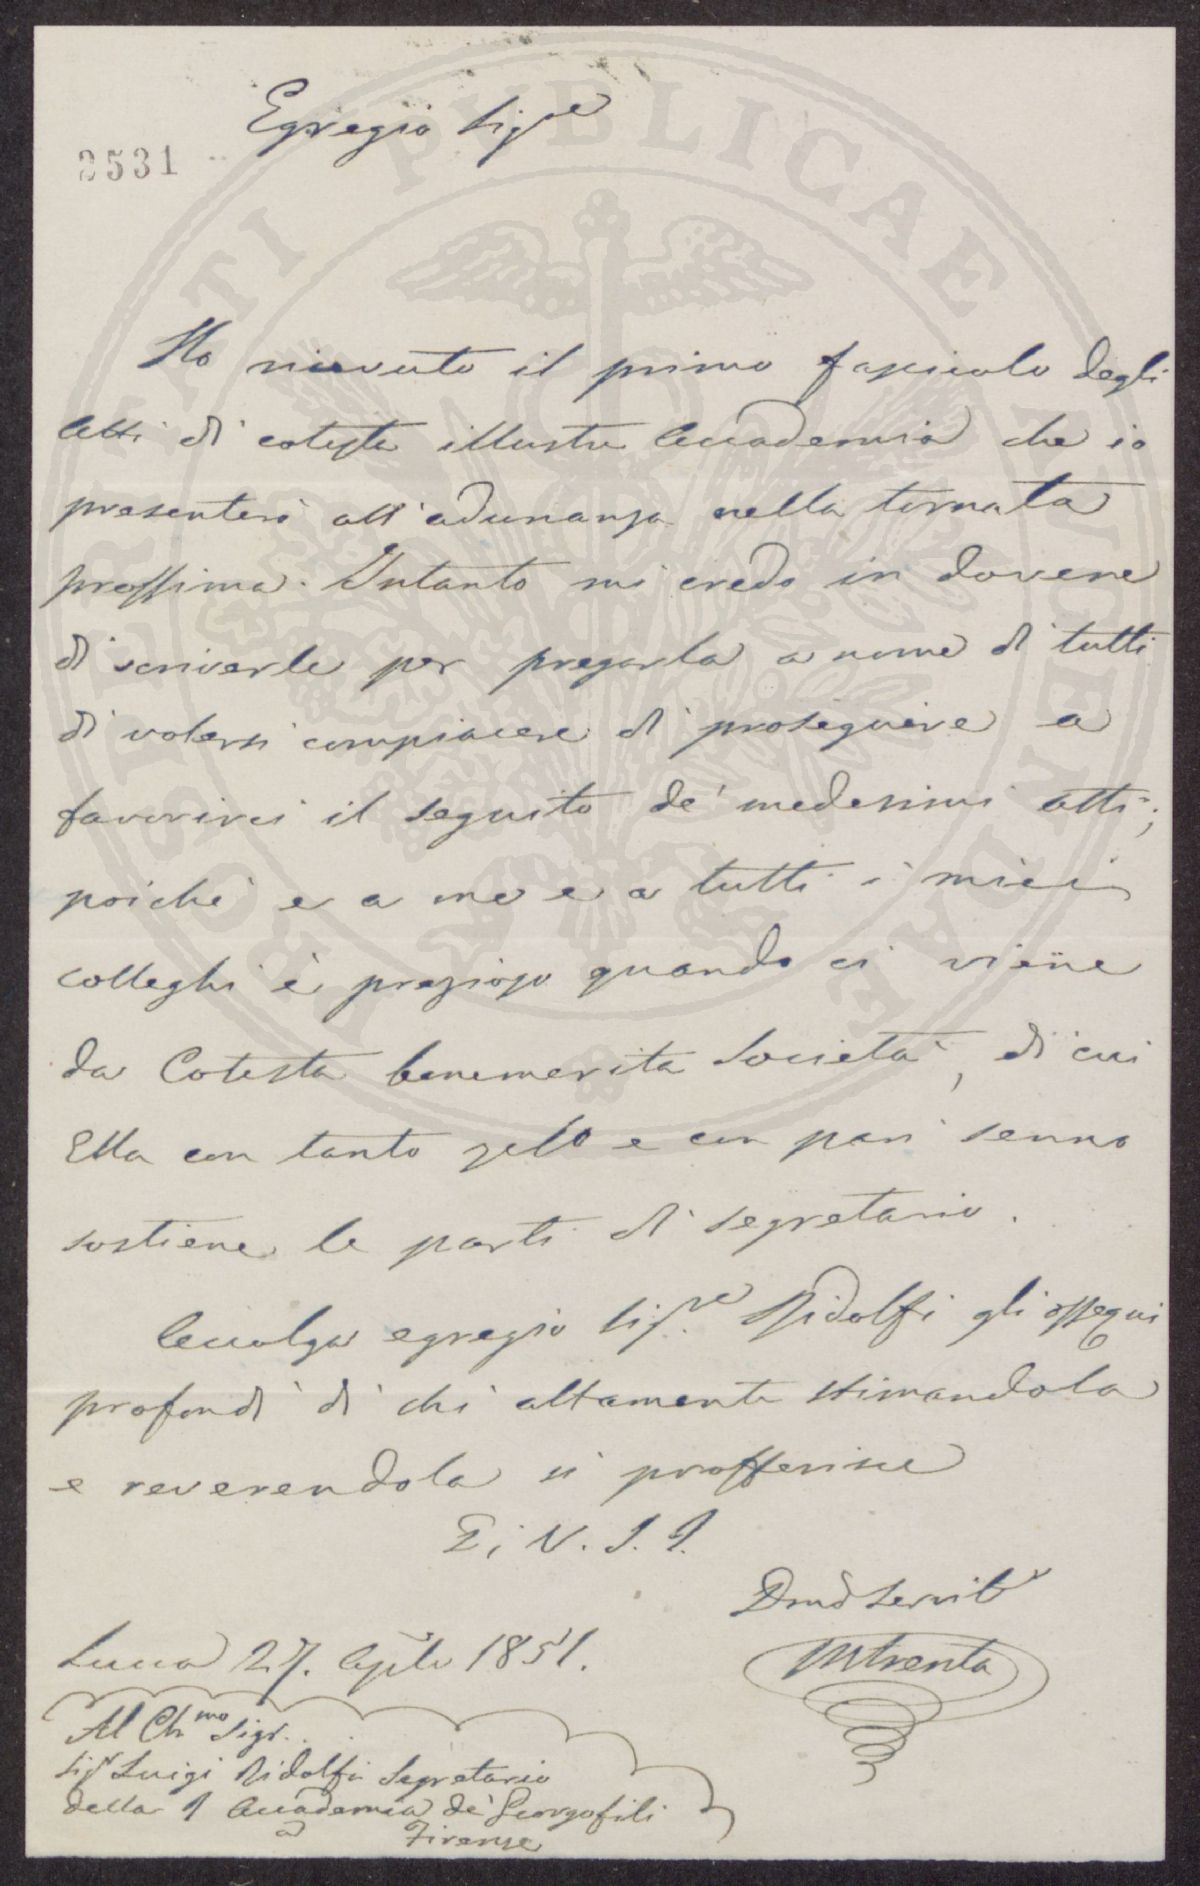 Egregio Sig.re
2531
Ho ricevuto il primo fascicolo degli
Atti di cotesta illustre Accademia che io
presenterò all'adunanza nella tornata
prossima. Intanto mi credo in dovere
di scriverle per pregarla a nome di tutti
di volersi compiacere di proseguire a
favorirci il seguito de' medesimi atti;
poichè e a me e a tutti i miei
colleghi è prezioso quando ci viene
da Cotesta benemerita Società, di cui
Ella con tanto zelo e con pari senno
sostiene le parti di segretario.
Accolga egregio Sig.re Ridolfi gli ossequi
profondi di chi altamente stimandola
e reverendola si profferisce
Di V. S. I.
Dmo Servitre
MTrenta
Lucca 27. Aprile 1851.
Al Ch.mo Sigr.
Sigr Luigi Ridolfi Segretario
della I Accademia de' Georgofili
a Firenze
PROSPERITATI PUBLICAE AUGENDAE